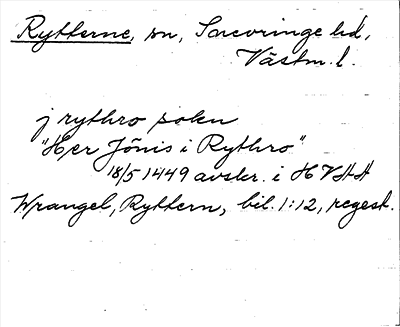 Rytterne, sn, Snevringe hd,
Västm. l.
j rythro sokn
"Her Jönis i Rythro"
18/5 1449 avskr. i HVAA
Wrangel, Ryttern, bil. 1:12, regest.